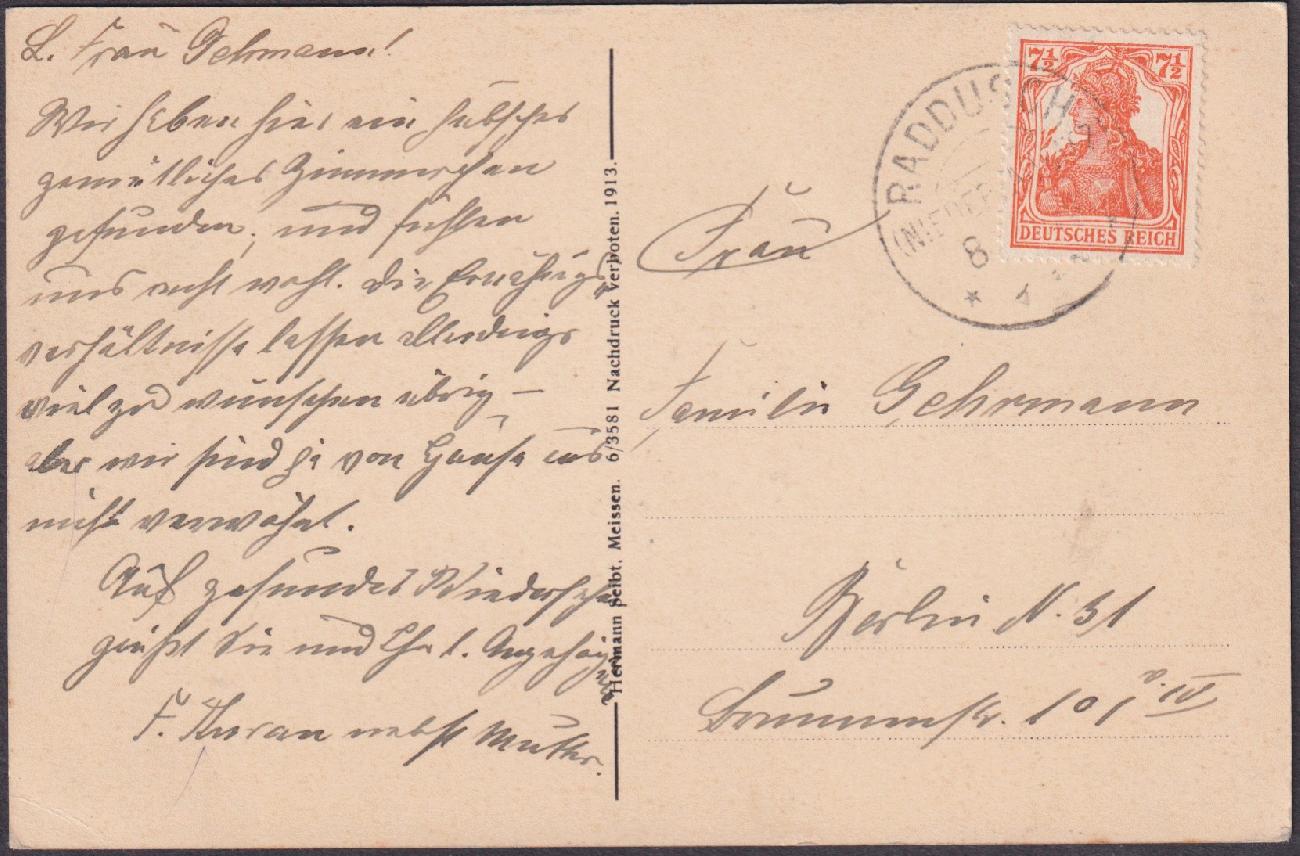 L. Frau Gehrmann!
Wir haben hier ein hübsches
gemütliches Zimmerchen
gefunden, und fühlen
uns recht wohl. Die Ernährungs
verhältnisse lassen allerdings
viel zu wünschen übrig –
aber wir sind ja von Hause aus
nicht verwöhnt.
Auf gesundes Wiedersehn
grüßt Sie und Ihre l. Angehörigen
F. nebst Mutter.
Hermann Seibt, Meissen. 6/3581 Nachdruck verboten. 1913.
RADDUSCH
8
7½ 7½
DEUTSCHES REICH
Frau
Familie Gehrmann
Berlin N. 31
Brunnenstr. 101 v. IV